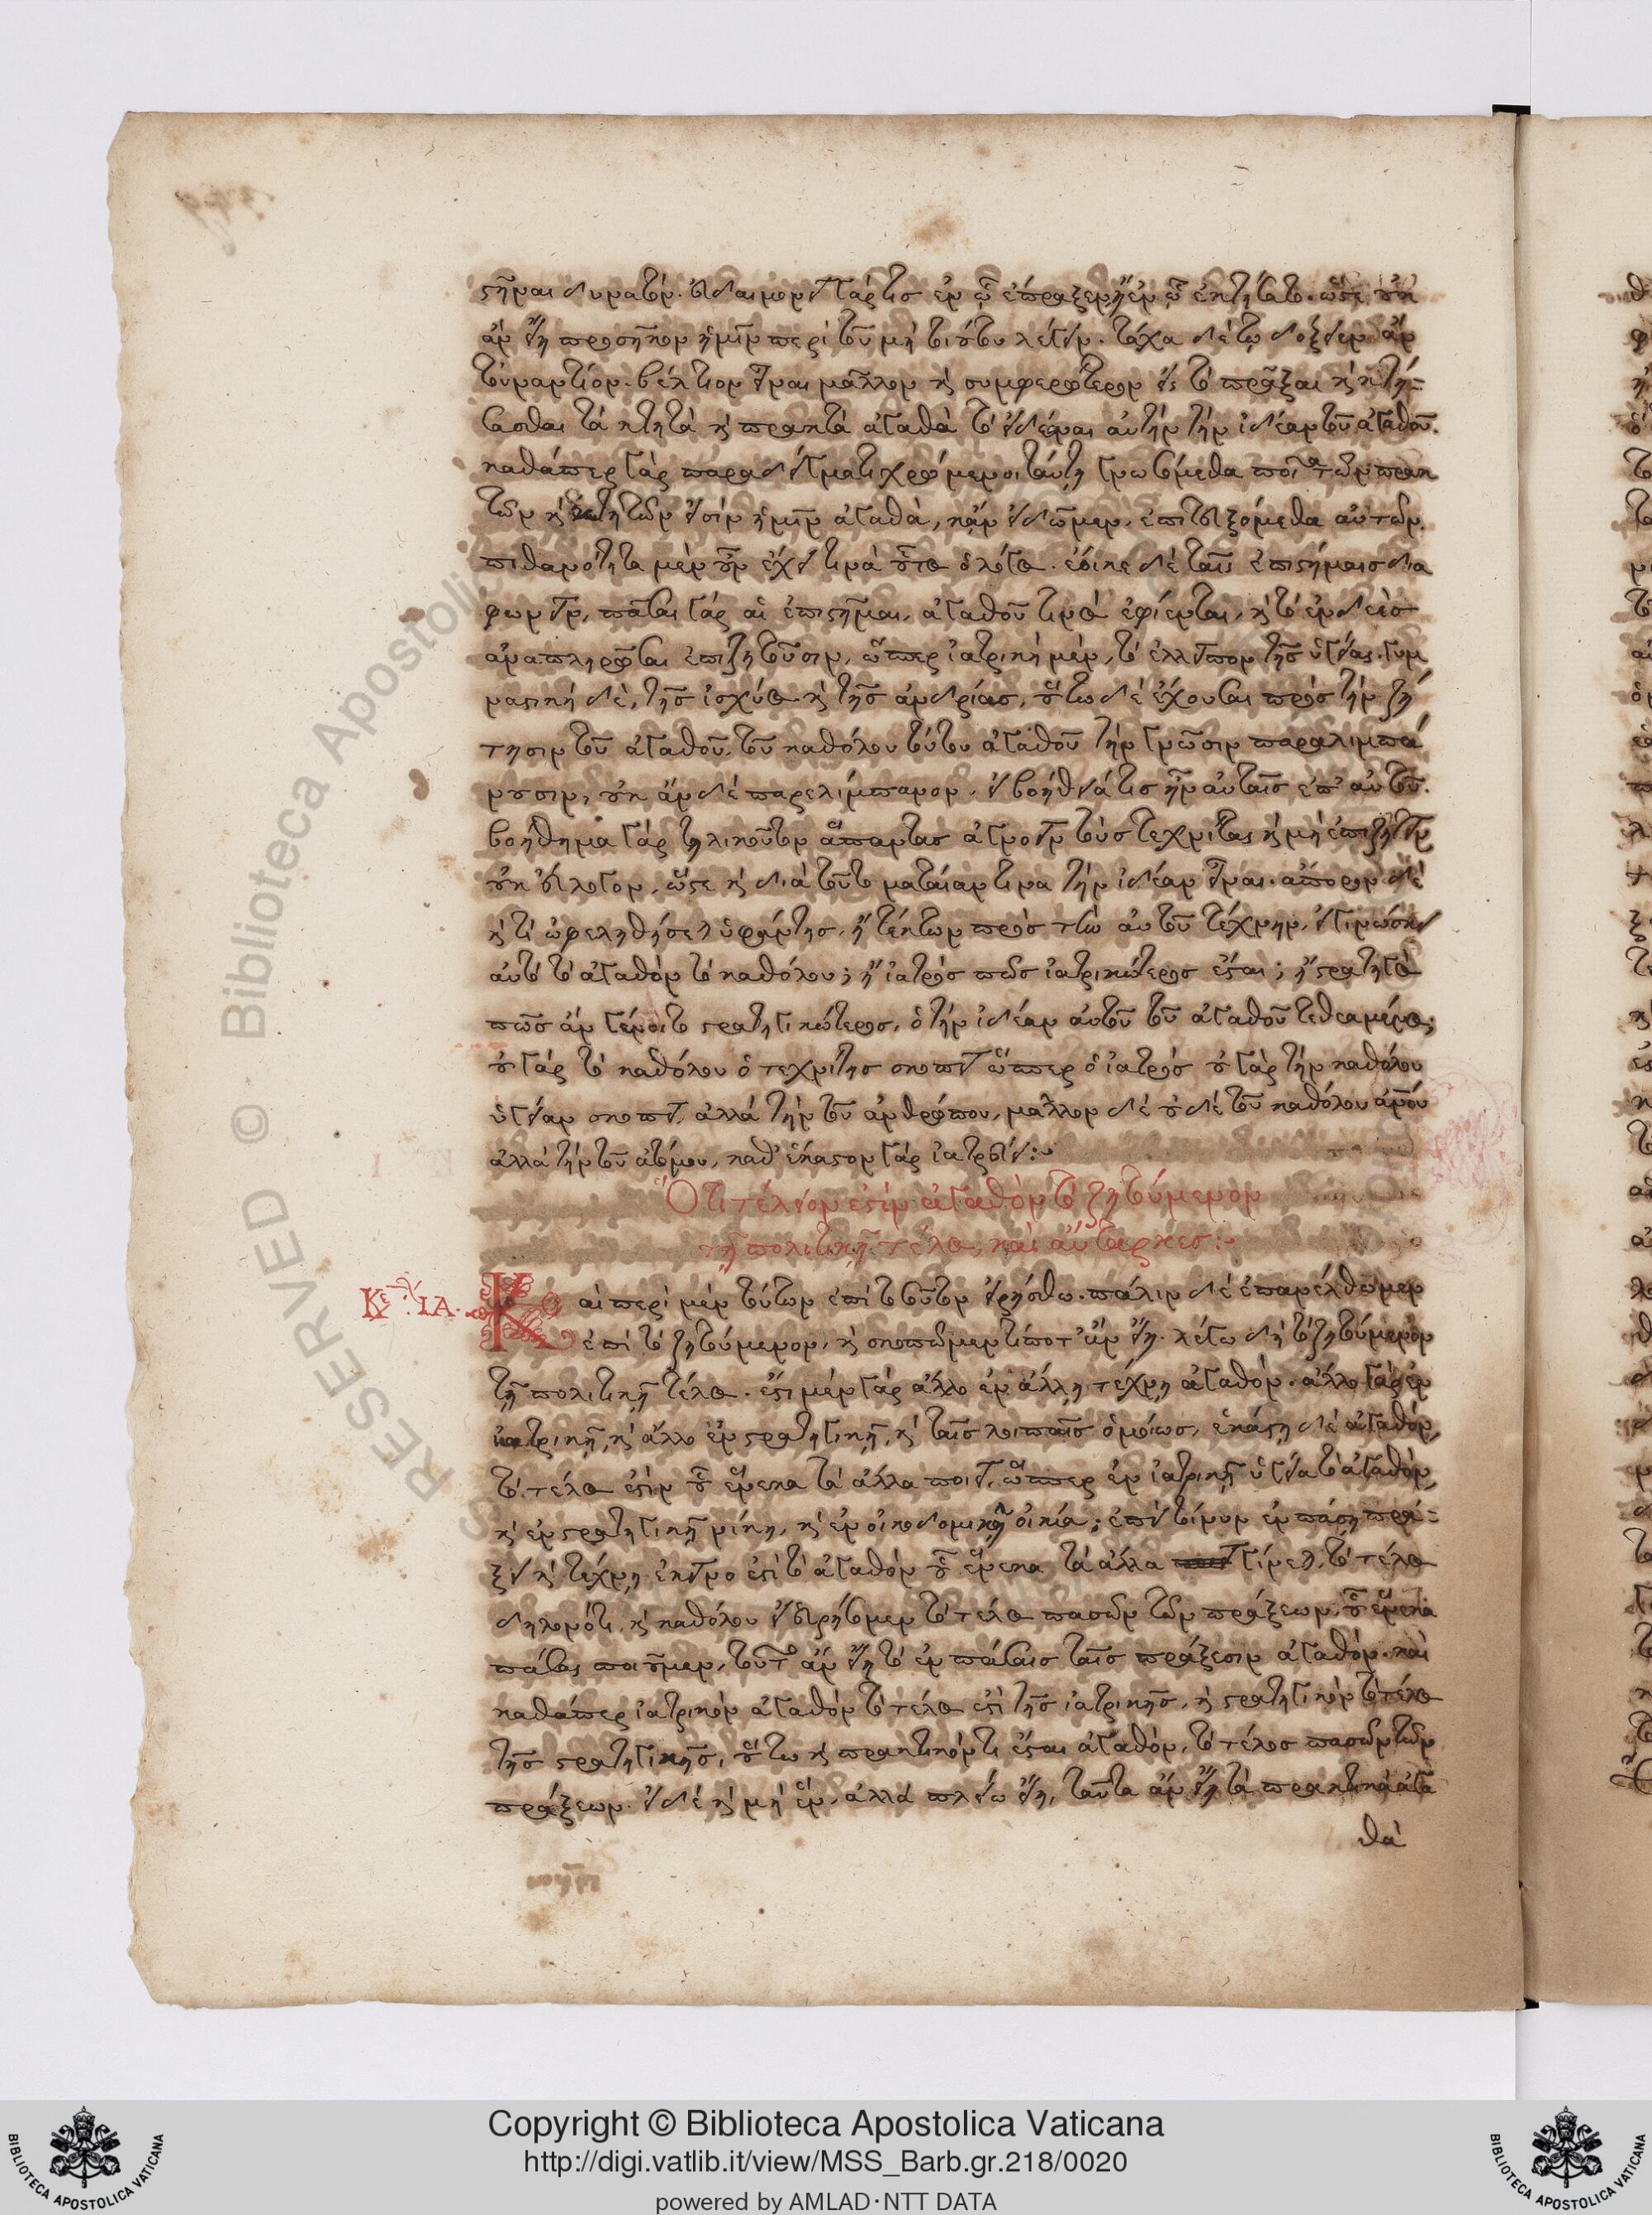 στῆναι δυνατόν. εὐδαιμονεῖ γάρ τις ἐν ᾧ ἔπραξεν, ἢ ἐν ᾧ ἐκτήσατο. ὥστε οὐκ
ἂν εἴη προσῆκον ἡμῖν περὶ τοῦ μὴ τοιούτου λέγειν. τάχα δέ τῳ δόξειεν ἂν
τὐναντίον. βέλτιον εἶναι μᾶλλον καὶ συμφερώτερον εἰς τὸ πρᾶξαι καὶ κτή-
σασθαι τὰ κτητὰ καὶ πρακτὰ ἀγαθὰ τὸ εἰδέναι αὐτὴν τὴν ἰδέαν τοῦ ἀγαθοῦ.
καθάπερ γὰρ παραδείγματι χρώμενοι ταύτῃ γνωσόμεθα ποῖα τῶν πρακ
τῶν καὶ κτητῶν εἰσὶν ἡμῖν ἀγαθὰ, κἂν εἰδῶμεν, ἐπιτευξόμεθα αὐτῶν.
πιθανότητα μὲν οὖν ἔχει τινὰ οὗτος ὁ λόγος. ἔοικε δὲ ταῖς ἐπιστήμαις δια
φωνεῖν, πᾶσαι γὰρ αἱ ἐπιστῆμαι, ἀγαθοῦ τινὸς ἐφίενται, καὶ τὸ ἐνδεὲς
ἀναπληρῶσαι ἐπιζητοῦσιν, ὥσπερ ἰατρικὴ μὲν, τὸ ἐλλεῖπον τῆς ὑγείας. γυμ
ναστικὴ δὲ, τῆς ἰσχύος καὶ τῆς ἀνδρίας, οὕτω δὲ ἔχουσαι πρὸς τὴν ζή
τησιν τοῦ ἀγαθοῦ, τοῦ καθόλου τούτου ἀγαθοῦ τὴν γνῶσιν παραλιμπά
νουσιν, οὐκ ἂν δὲ παρελίμπανον, εἰ βοήθειά τις ἦν αὐταῖς ἐπ' αὐτοῦ.
βοήθημα γὰρ τηλικοῦτον ἅπαντας ἀγνοεῖν τοὺς τεχνίτας καὶ μὴ ἐπιζητεῖν
οὐκ εὔλογον, ὥστε καὶ διὰ τοῦτο ματαίαν τινα τὴν ἰδέαν εἶναι. ἄπορον δὲ
καὶ τί ὠφεληθήσεται ὑφάντης, ἢ τέκτων πρὸς τὴν αὐτοῦ τέχνην, εἰ γινώσκει
αὐτὸ τὸ ἀγαθὸν τὸ καθόλου; ἢ ἰατρὸς πῶς ἰατρικώτερος ἔσται; ἢ στρατηγὸς
πῶς ἂν γένοιτο στρατηγικώτερος, ὁ τὴν ἰδέαν αὐτοῦ τοῦ ἀγαθοῦ τεθεαμένος;
οὐ γὰρ τὸ καθόλου ὁ τεχνίτης σκοπεῖ ὥσπερ ὁ ἰατρὸς οὐ γὰρ τὴν καθόλου
ὑγείαν σκοπεῖ, ἀλλὰ τὴν τοῦ ἀνθρώπου, μᾶλλον δὲ οὐδὲ τοῦ καθόλου ἀνου
ἀλλὰ τὴν τοῦ ἀτόμου, καθ' ἕκαστον γὰρ ἰατρεύει:
Ὅτι τέλειον ἐστὶν ἀγαθὸν τὸ ζητούμενον
τῇ πολιτικῇ τέλος, καὶ αὔταρκες:
Κε. ΙΑ. Καὶ περὶ μὲν τούτων ἐπὶ τοσοῦτον εἰρήσθω. πάλιν δὲ ἐπανέλθωμεν
ἐπὶ τὸ ζητούμενον, καὶ σκοπῶμεν τί ποτ' ἂν εἴη. λέγω δὴ τὸ ζητούμενον
τῇ πολιτικῇ τέλος. ἔστι μὲν γὰρ ἄλλο ἐν ἄλλῃ τέχνῃ ἀγαθόν. ἄλλο γὰρ ἐν
ἰατρικῇ, καὶ ἄλλο ἐν στρατηγικῇ, καὶ ταῖς λοιπαῖς ὁμοίως, ἑκάστη δὲ ἀγαθὸν,
τὸ τέλος ἐστὶν οὗ ἕνεκα τὰ ἄλλα ποιεῖ, ὥσπερ ἐν ἰατρικῇ ὑγεία τὸ ἀγαθὸν,
καὶ ἐν στρατηγικῇ νίκη, καὶ ἐν οἰκοδομικῇ οἰκία; ἐπεὶ τοίνυν ἐν πάσῃ πρά-
ξει καὶ τέχνῃ ἐκεῖνο ἐστὶ τὸ ἀγαθὸν οὗ ἕνεκα τὰ ἄλλα γίνεται, τὸ τέλος
δηλονότι, καὶ καθόλου εἰ εὑρήσομεν τὸ τέλος πασῶν τῶν πράξεων, οὗ ἕνεκα
πάσας ποιοῦμεν, τοῦτο ἂν εἴη τὸ ἐν πάσαις ταῖς πράξεσιν ἀγαθόν. καὶ
καθάπερ ἰατρικὸν ἀγαθὸν τὸ τέλος ἐστὶ τῆς ἰατρικῆς, καὶ στρατηγικὸν τὸ τέλος
τῆς στρατηγικῆς, οὕτω καὶ πρακτικόν τι ἔσται ἀγαθὸν, τὸ τέλος πασῶν τῶν
πράξεων. εἰ δὲ καὶ μὴ ἓν, ἀλλὰ πλείω εἴη, ταῦτα ἂν εἴη τὰ πρακτικὰ ἀγα
θὰ
Copyright © Biblioteca Apostolica Vaticana
http://digi.vatlib.it/view/MSS_Barb.gr.218/0020
powered by AMLAD·NTT DATA